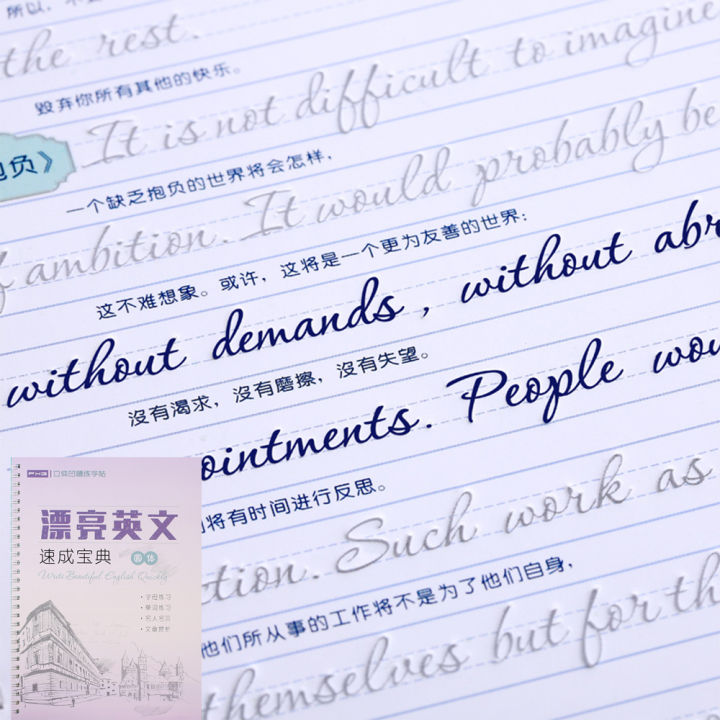 所以，
the rest.
毁弃你所有其他的快乐。
It is not difficult to imagine
抱负》
一个缺乏抱负的世界将会怎样，
of ambition. It would probably be
这不难想象。或许，这将是一个更为友善的世界：
without demands, without abr
沒有渴求，沒有磨擦，沒有失望。
ointments. People wou
将有时间进行反思。
ction. Such work as
他们所从事的工作将不是为了他们自身，
themselves but for th
漂亮英文
速成宝典
Write Beautiful English Quickly
字母练习
单词练习
名人名言
文章赏析